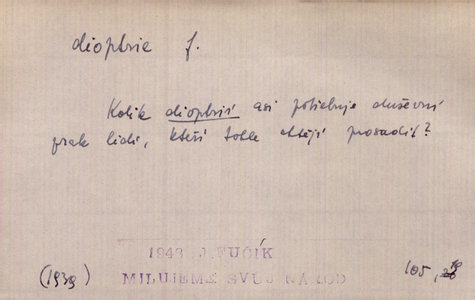 dioptrie f.
Kolik dioptrií asi potřebuje duševní
zrak lidí, kteří tohle chtějí prosadit?
1948 J.FUČÍK
MILUJEME SVŮJ NÁROD
(1938)
105,